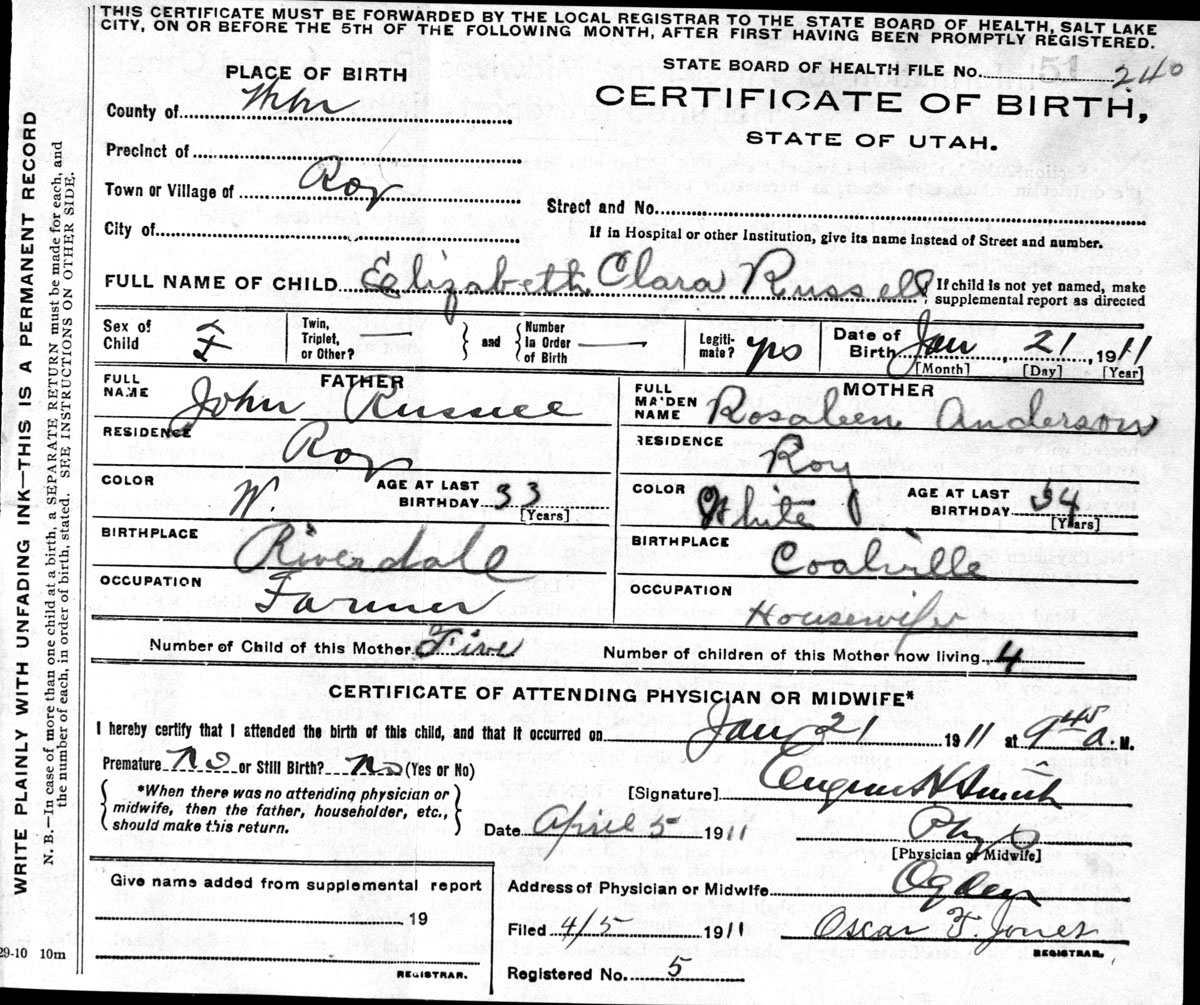 THIS CERTIFICATE MUST BE FORWARDED BY THE LOCAL REGISTRAR TO THE STATE BOARD OF HEALTH, SALT LAKE
CITY, ON OR BEFORE THE 5TH OF THE FOLLOWING MONTH, AFTER FIRST HAVING BEEN PROMPTLY REGISTERED.
WRITE PLAINLY WITH UNFADING INK—THIS IS A PERMANENT RECORD
N. B.—In case of more than one child at a birth, a SEPARATE RETURN must be made for each, and
the number of each, in order of birth, stated. SEE INSTRUCTIONS ON OTHER SIDE.
STATE BOARD OF HEALTH FILE No. 240
CERTIFICATE OF BIRTH,
STATE OF UTAH.
PLACE OF BIRTH
County of
Precinct of
Town or Village of Roy
Street and No.
City of
If in Hospital or other Institution, give its name instead of Street and number.
FULL NAME OF CHILD Elizabeth Clara Russell
If child is not yet named, make
supplemental report as directed
Sex of Child F
Twin, Triplet, or Other?
and
Number In Order of Birth
Legiti- mate? yes
Date of Birth Jan 21, 1911
[Month] [Day] [Year]
FATHER
FULL NAME John Russell
RESIDENCE Roy
COLOR W.
AGE AT LAST BIRTHDAY 33
[Years]
BIRTHPLACE Riverdale
OCCUPATION Farmer
MOTHER
FULL MAIDEN NAME Rosabeen Anderson
RESIDENCE Roy
COLOR White
AGE AT LAST BIRTHDAY 34
[Years]
BIRTHPLACE Coalville
OCCUPATION Housewife
Number of Child of this Mother Five
Number of children of this Mother now living 4
CERTIFICATE OF ATTENDING PHYSICIAN OR MIDWIFE*
I hereby certify that I attended the birth of this child, and that it occurred on Jan 21 1911 at 9 45 a. M.
Premature No or Still Birth? No (Yes or No)
*When there was no attending physician or
midwife, then the father, householder, etc.,
should make this return.
[Signature] Eugene H Smith
Date April 5 1911
Phy
[Physician or Midwife]
Give name added from supplemental report
19
REGISTRAR.
Address of Physician or Midwife Ogden
Filed 4/5 1911 Oscar F. Jones
REGISTRAR.
Registered No. 5
29-10 10m